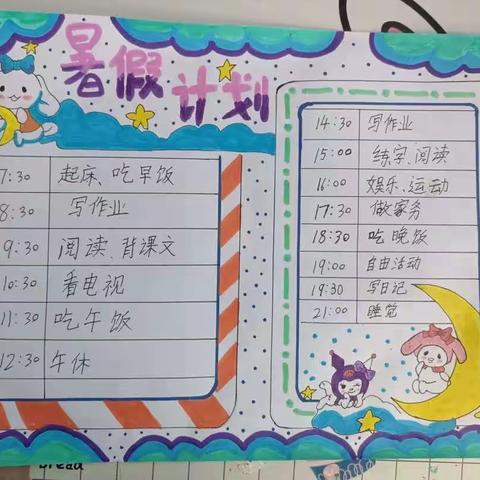 暑假计划
7:30 起床、吃早饭
8:30 写作业
9:30 阅读、背课文
10:30 看电视
11:30 吃午饭
12:30 午休
14:30 写作业
15:00 练字、阅读
16:00 娱乐、运动
17:30 做家务
18:30 吃晚饭
19:00 自由活动
19:30 写日记
21:00 睡觉
bread